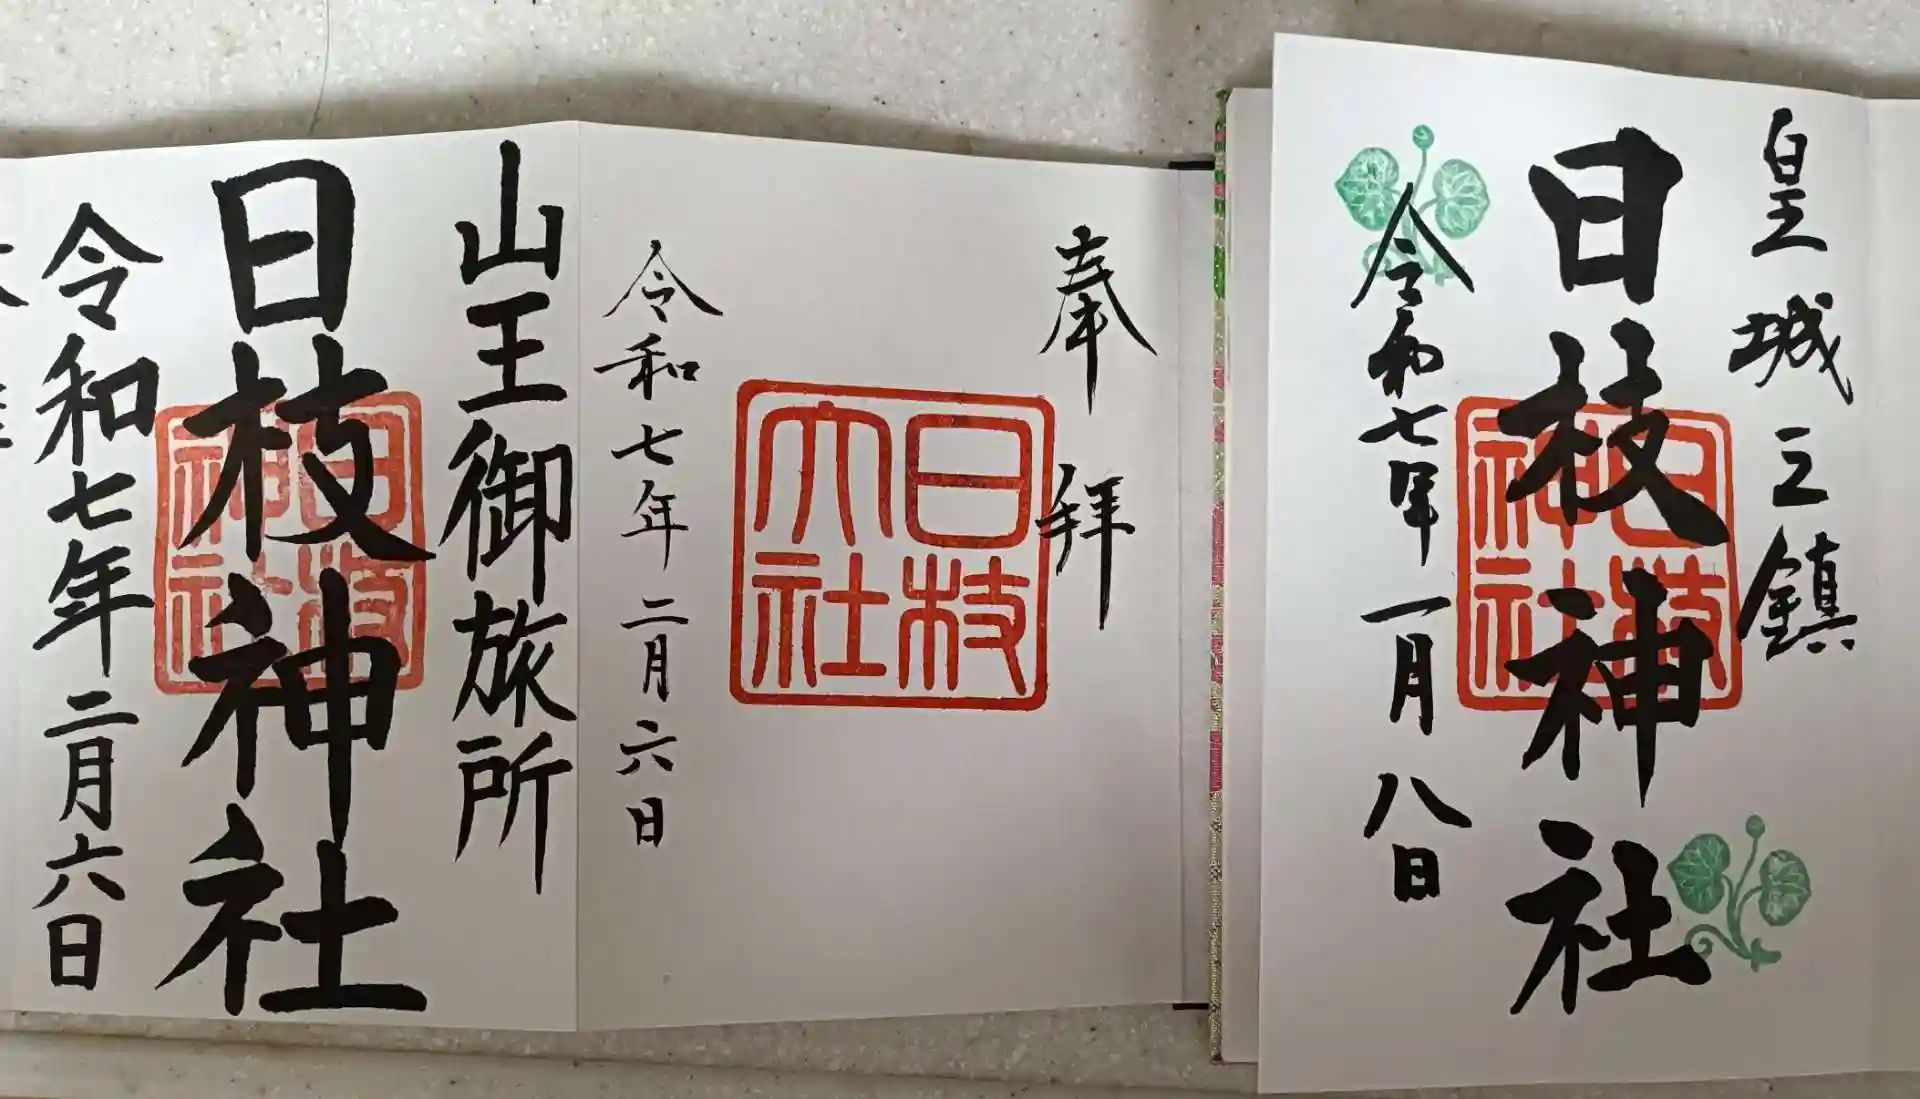 皇城之鎮
日枝神社
日枝神社
令和七年一月八日
奉拝
日枝大社
令和七年二月六日
山王御旅所
日枝神社
日枝神社
令和七年二月六日